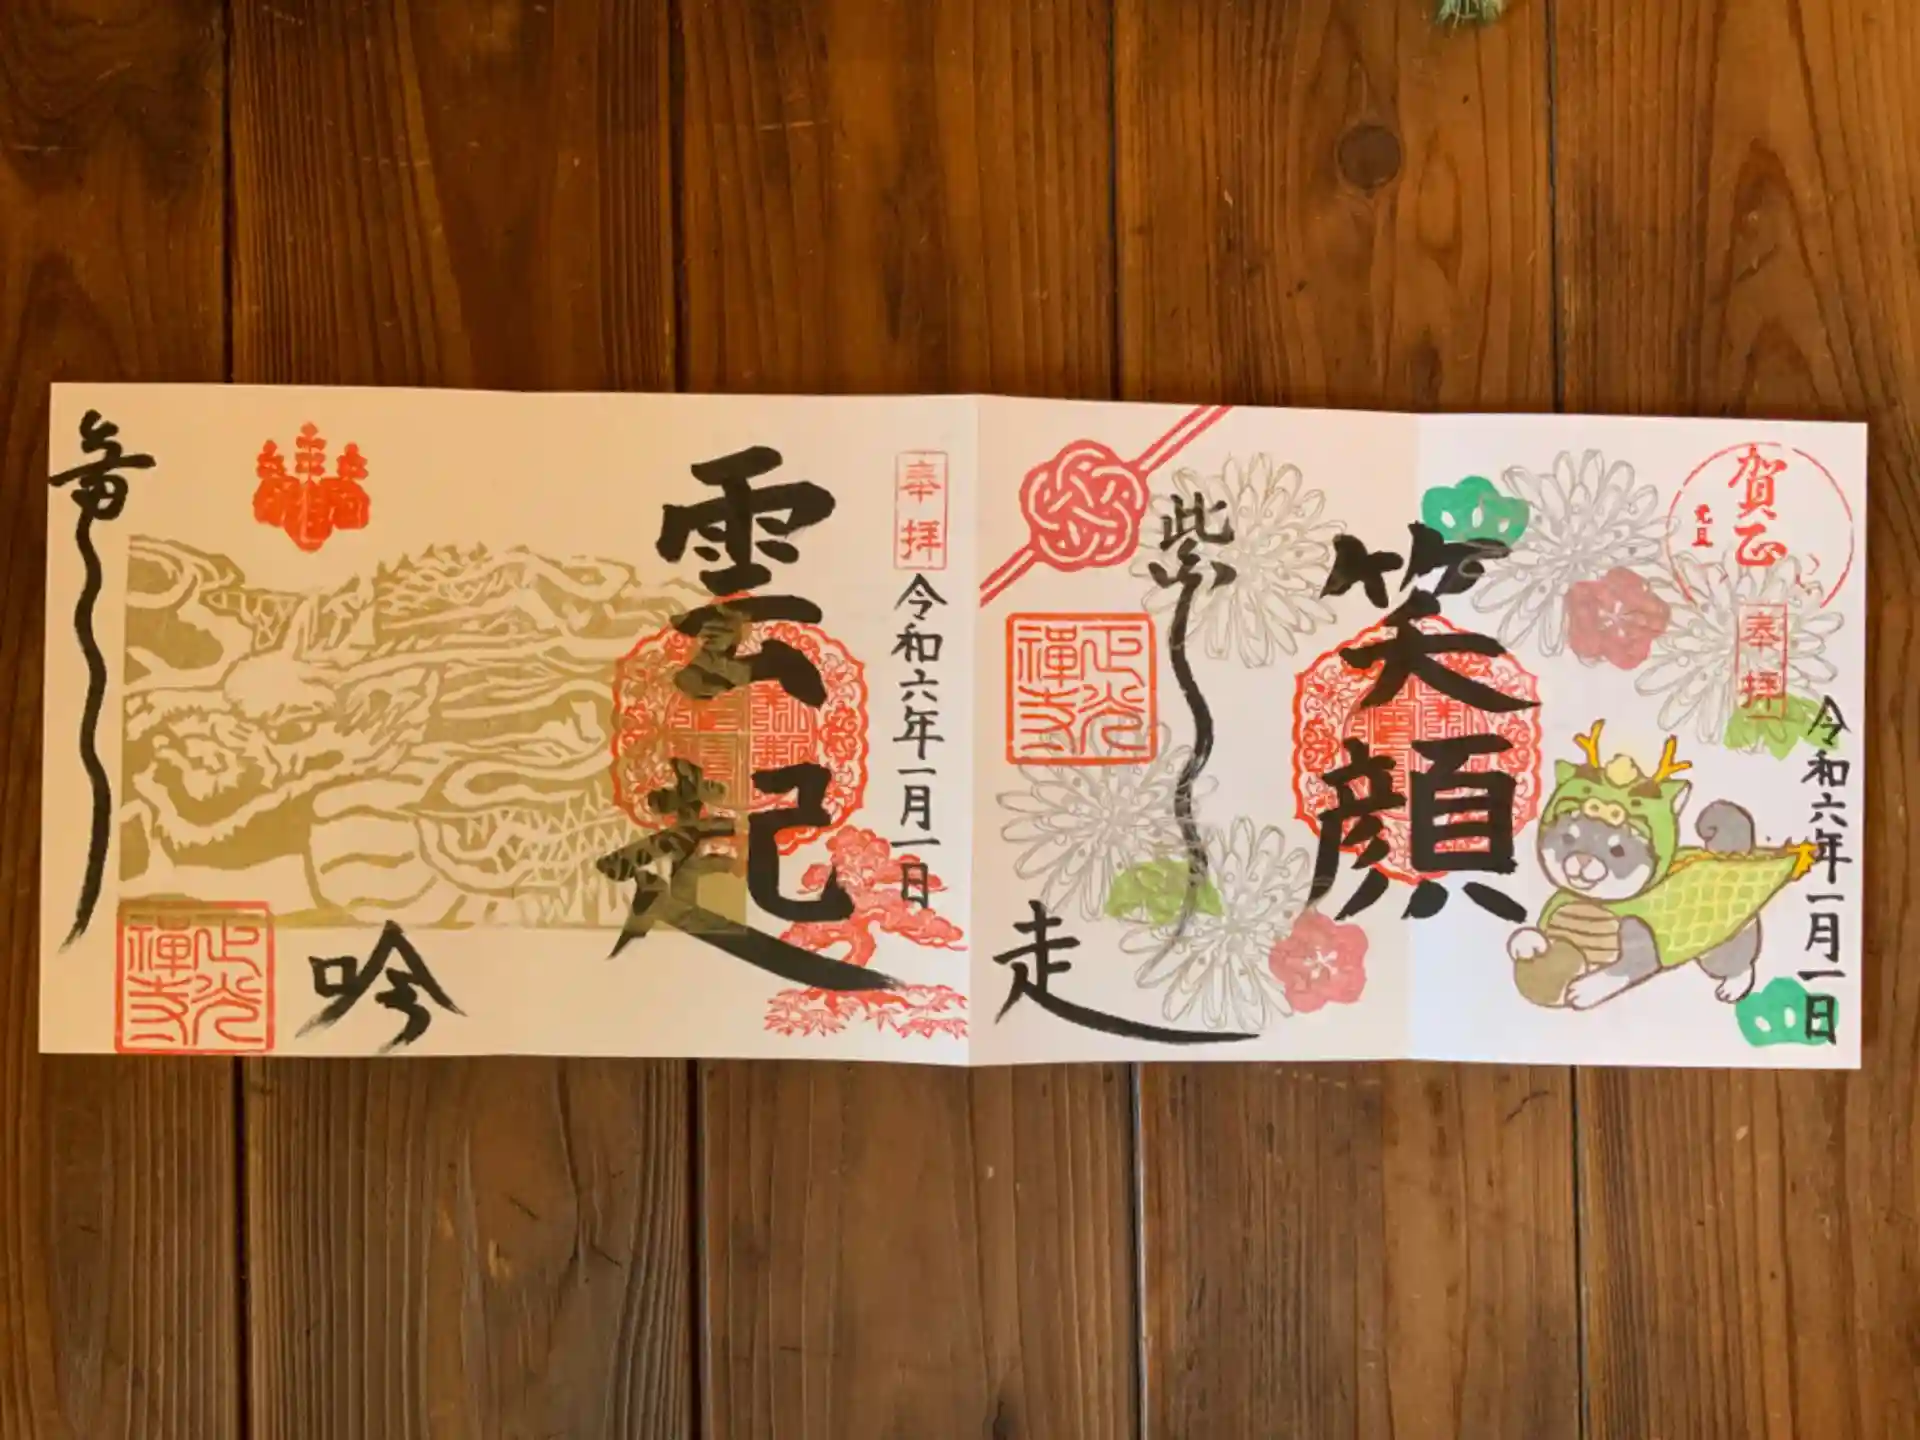 賀正
元旦
奉拝
令和六年一月一日
笑顔
走
正光禪寺
奉拝
令和六年一月一日
雲起
竜
吟
正光禪寺